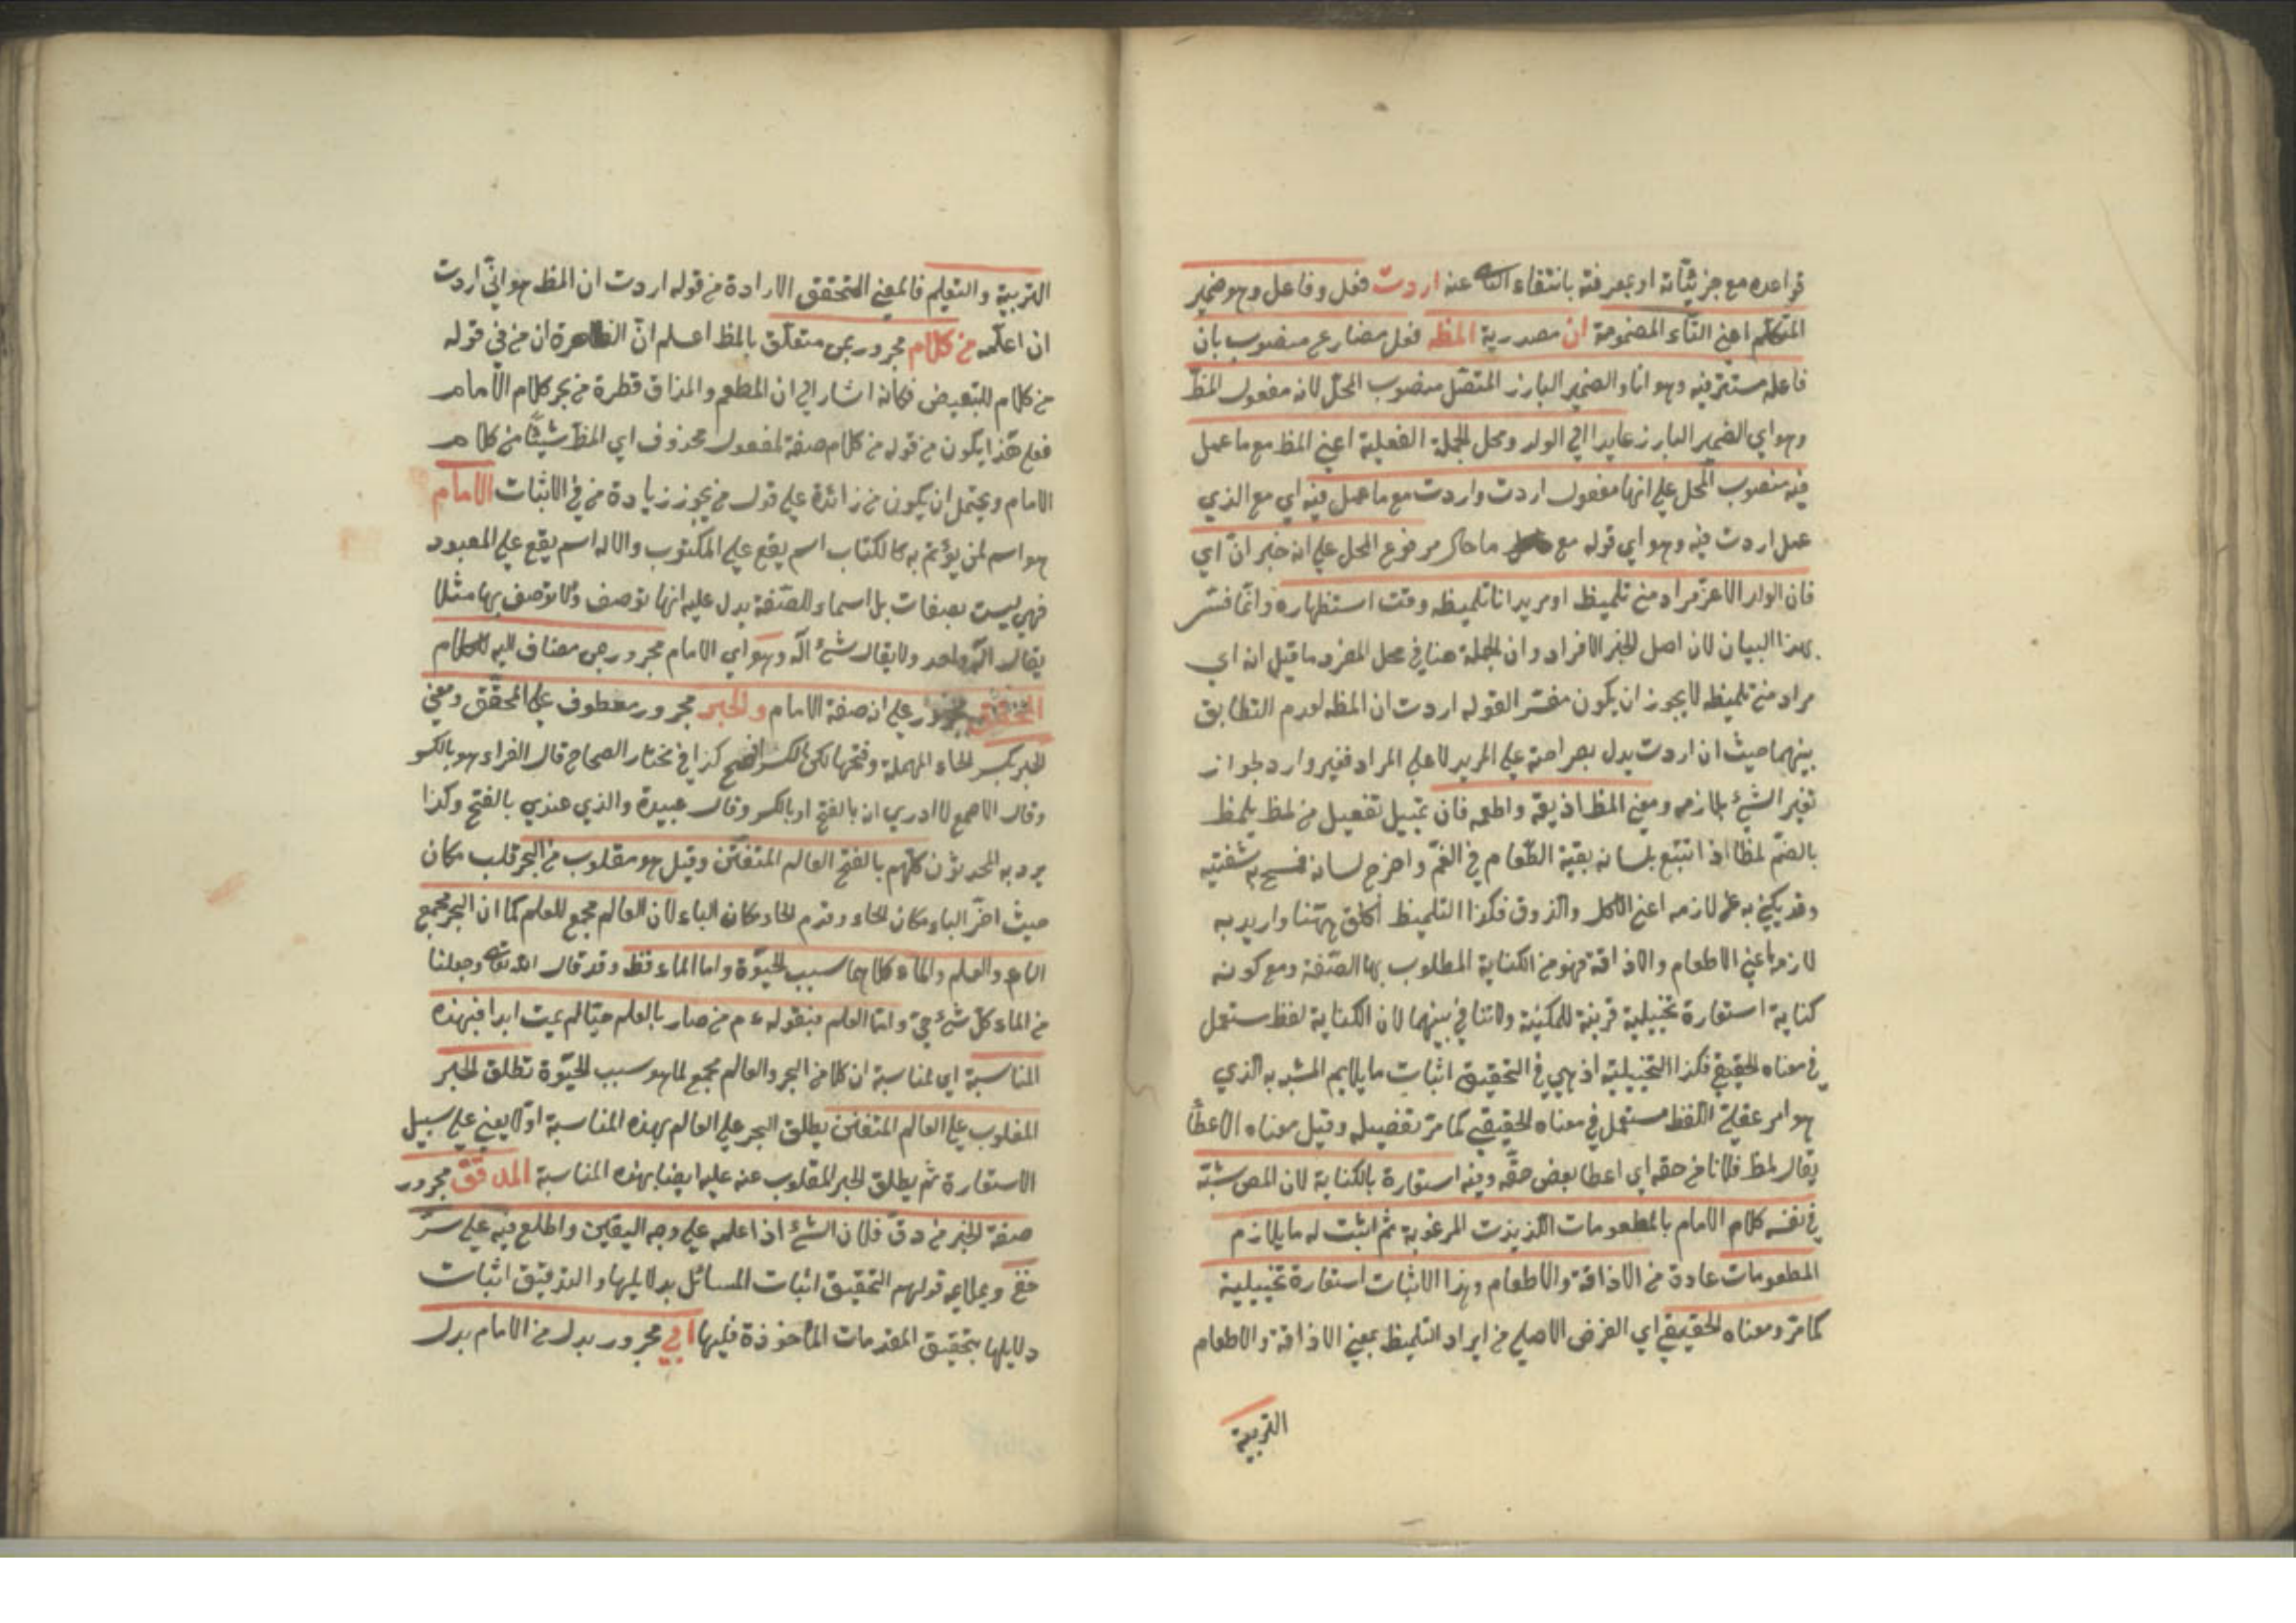 قواعده مع جزئياته او بمعرفته بانتفاء عنه اردت فعل وفاعل وهو ضمير
المتكلم اعني التاء المضمومة ان مصدرية المظه فعل مضارع منصوب بان
فاعله مستتر فيه وهو انا والضمير البارز المتصل منصوب المحل لانه مفعول المظ
وهو اي الضمير البارز عايد الي الولد ومحل الجملة الفعلية اعني المظ مع ما عمل
فيه منصوب المحل علي انها مفعول اردت واردت مع ما عمل فيه اي مع الذي
عمل اردت فيه وهو اي قوله مع ما مرفوع المحل علي انه خبر ان اي
فان الولد الاعز مراد مني تلميظ او مريد انا تلميظه وقت استظهاره وانما فسر
بهذا البيان لان اصل الخبر الافراد وان الجملة هنا في محل المفرد ما قيل انه اي
مراد مني تلميظه لا يجوز ان يكون مفسر القوله اردت ان المظه لعدم التطابق
بينهما حيث ان اردت يدل بصراحته علي المريد لا علي المراد فغير وارد لجواز
تفسير الشئ بلازمه ومعني المظ اذيقه واطعمه فان تفعيل من لمظ يلمظ
بالضم لمظا اذا تتبع بلسانه بقية الطعام في الفم واخرج لسانه فمسح به شفتيه
وقد يكني به عن لازمه اعني الاكل والذوق فكذا التلميظ اطلق ههنا واريد به
لازمه اعني الاطعام والاذاقة فهو من الكناية المطلوب بها الصفة ومع كونه
كناية استعارة تخييلية قرينة للمكنية ولا تنافي بينهما لان الكناية لفظ مستعمل
في معناه الحقيقي فكذا التخييلية اذ هي في التحقيق اثبات ما يلايم المشبه به الذي
هو امر عقلي اللفظ مستعمل في معناه الحقيقي كما مر تفصيله وقيل معناه الاعطا
يقال لمظ فلانا من حقه اي اعطا بعض حقه وفيه استعارة بالكناية لان المص شبه
في نفسه كلام الامام بالمطعومات اللذيذت المرغوبة ثم اثبت له ما يلازم
المطعومات عادة من الاذاقة والاطعام وهذا الاثبات استعارة تخييلية
كما مر ومعناه الحقيقي اي الغرض الاصلي من ايراد التلميظ بمعني الاذاقة والاطعام
التربية
التربية والتعليم فالمعني المتحقق الارادة من قوله اردت ان المظ هو اني اردت
ان اعلمه من كلام مجرور بمن متعلق بالمظ اعلم ان الظاهرة ان من في قوله
من كلام للتبعيض فكانه اشار الي ان المطعم والمذاق قطرة من بحر كلام الامام
فعلي هذا يكون من قوله من كلام صفة لمفعول محذوف اي المظ شيئا من كلام
الامام ويحتمل ان يكون من زائدة علي قول من يجوز زيادة من في الاثبات الامام
هو اسم لمن يؤتم به كالكتاب اسم يقع علي المكتوب والاله اسم يقع علي المعبود
فهي ليست بصفات بل اسماء للصفة يدل عليه انها توصف ولا توصف بها مثلا
يقال اله واحد ولا يقال شئ اله وهو اي الامام مجرور مضاف اليه للكلام
المحقق مجرور علي انه صفة الامام والحبر مجرور معطوف علي المحقق ومعني
الحبر بكسر الحاء المهملة وفتحها لكن الكسر افصح كذا في مختار الصحاح قال الفراء هو بالكسر
وقال الاصمعي لا ادري انه بالفتح او بالكسر وقال عبيدة والذي عندي بالفتح وكذا
يرد به المحدثون كلهم بالفتح العالم المتفنن وقيل هو مقلوب من البحر قلب مكان
حيث اخر الباء مكان الحاء وقدم الحاء مكان الباء لان العالم مجمع للعلم كما ان البحر مجمع
الماء والعلم والماء كلاهما سبب للحيوة واما الماء فقط وقد قال الله تعالي وجعلنا
من الماء كل شئ حي واما العلم فبقوله ع م من صار بالعلم حيا لم يمت ابدا فبهذه
المناسبة اي لمناسبة ان كلا من البحر والعالم مجمع لما هو سبب للحيوة تطلق الحبر
المقلوب علي العالم المتفنن يطلق البحر علي العالم بهذه المناسبة اولا يعني علي سبيل
الاستعارة ثم يطلق الحبر المقلوب عنه عليه ايضا بهذه المناسبة المدقق مجرور
صفة الحبر من دق فلان الشئ اذا علمه علي وجه اليقين واطلع فيه علي سر
خفي ويملايمه قولهم التحقيق اثبات المسائل بدلايلها والتدقيق اثبات
دلايلها بتحقيق المقدمات المأخوذة فيها ابي مجرور بدل من الامام بدل